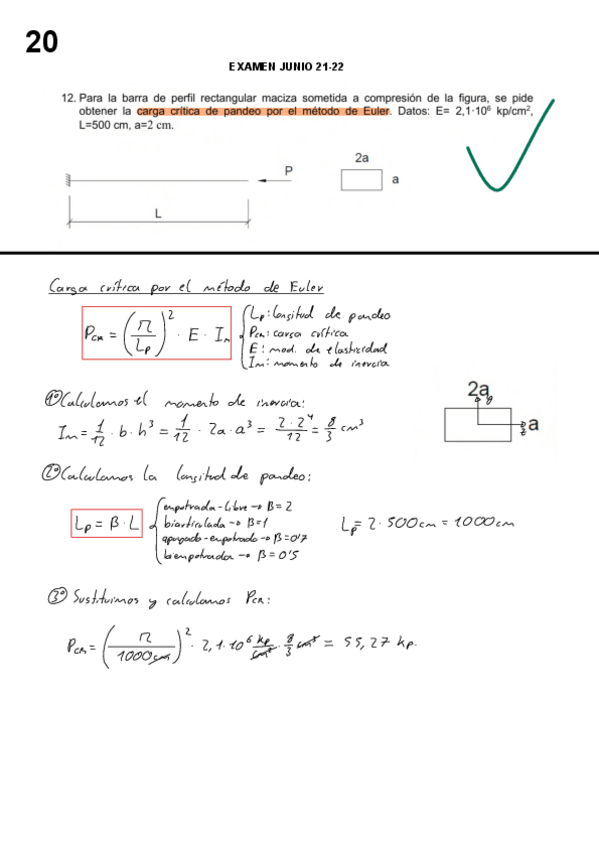 20
EXAMEN JUNIO 21-22
12. Para la barra de perfil rectangular maciza sometida a compresión de la figura, se pide
obtener la carga crítica de pandeo por el método de Euler. Datos: E= 2,1·10⁶ kp/cm²,
L=500 cm, a=2 cm.
P
2a
a
L
Carga crítica por el método de Euler
Pcr = (π/Lp)² · E · Im
Lp: longitud de pandeo
Pcr: carga crítica
E: mod. de elasticidad
Im: momento de inercia
1º Calculamos el momento de inercia:
Im = 1/12 · b · h³ = 1/12 · 2a · a³ = 2·2⁴/12 = 8/3 cm³
2a
y
z
a
2º Calculamos la longitud de pandeo:
Lp = β · L
empotrada-libre → β=2
biarticulada → β=1
apoyado-empotrado → β=0'7
biempotrador → β=0'5
Lp = 2·500cm = 1000cm
3º Sustituimos y calculamos Pcr:
Pcr = (π/1000cm)² · 2,1·10⁶ kp/cm² · 8/3 cm⁴ = 55,27 kp.